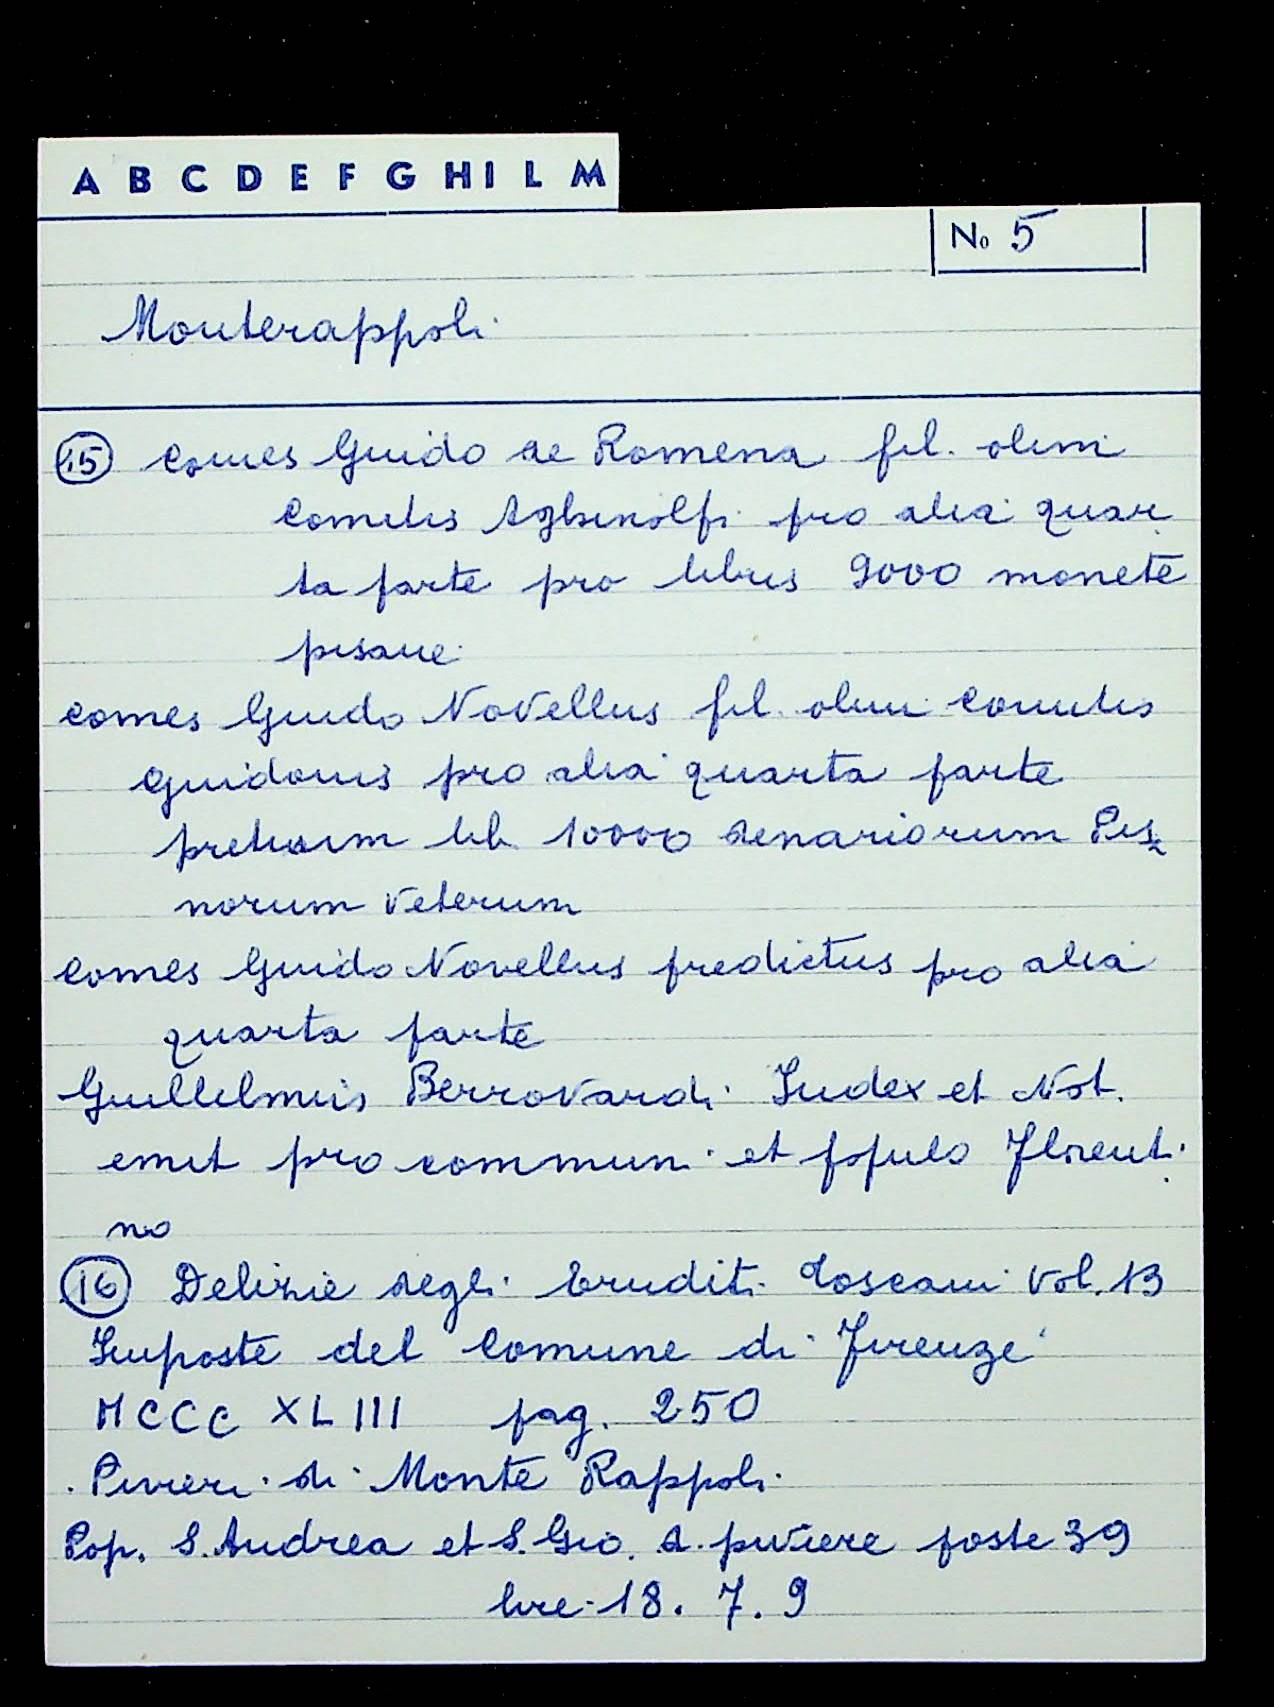 A B C D E F G H I L M
No 5
Monterappoli
15 Comes Guido de Romena fil. olim
Comitis Aghinolfi pro alia quar
ta parte pro libris 9000 monete
pisane
Comes Guido Novellus fil. olim Comitis
Guidonis pro alia quarta parte
pretium lib 10000 denariorum Pis
norum veterum
Comes Guido Novellus predictus pro alia
quarta parte
Guillelmus Berrovardi Iudex et Not.
emit pro communi et populo Florenti
no
16 Delizie degli Eruditi Toscani Vol. 13
Imposte del Comune di Firenze
MCCC XLIII pag. 250
Pivieri di Monte Rappoli
Pop. S. Andrea et S. Gio. d. piviere poste 39
lire 18. 7. 9